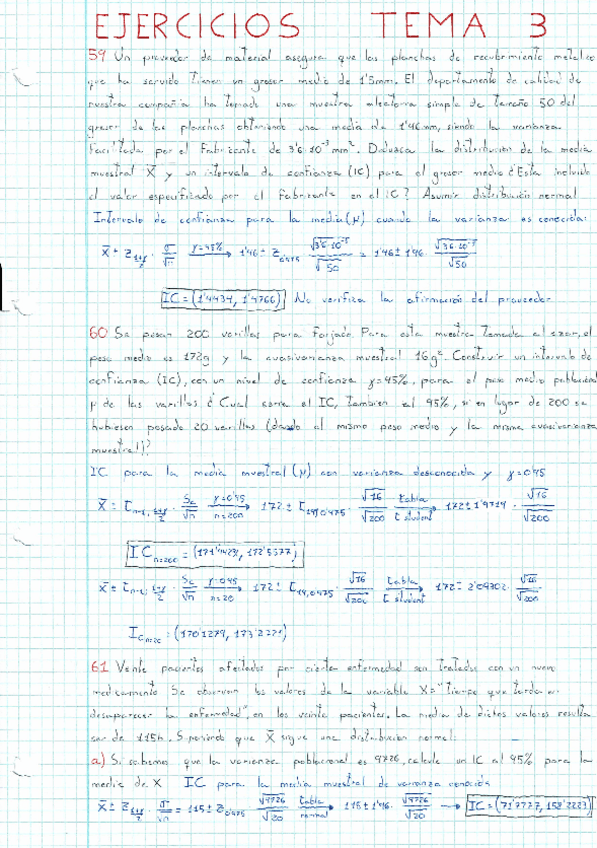 EJERCICIOS TEMA 3
59 Un proveedor de material asegura que las planchas de recubrimiento metálico
que ha servido tienen un grosor medio de 1'5mm. El departamento de calidad de
nuestra compañia ha tomado una muestra aleatoria simple de tamaño 50 del
grosor de las planchas obteniendo una media de 1'46 mm, siendo la varianza
facilitada por el fabricante de 3'6·10⁻³ mm². Deduzca la distribución de la media
muestral X̄ y un intervalo de confianza (IC) para el grosor medio ¿Está incluido
el valor especificado por el fabricante en el IC? Asumir distribución normal
Intervalo de confianza para la media (μ) cuando la varianza es conocida:
IC = (1'4434, 1'4766) No verifica la afirmación del proveedor
60 Se pesan 200 varillas para forjado. Para esta muestra tomada al azar, el
peso medio es 172g y la cuasivarianza muestral 16g². Construir un intervalo de
confianza (IC), con un nivel de confianza γ=95%, para el peso medio poblacional
μ de las varillas ¿Cual sería el IC, tambien al 95%, si en lugar de 200 se
hubiesen pesado 20 varillas (dando el mismo peso medio y la misma cuasivarianza
muestral)?
IC para la media muestral (μ) con varianza desconocida y γ=0'95
IC n=200 = (171'4423, 172'5577)
IC n=20 : (170'1279, 173'2721)
61 Veinte pacientes afectados por cierta enfermedad son tratados con un nuevo
medicamento Se observan los valores de la variable X="tiempo que tarda en
desaparecer la enfermedad", en los veinte pacientes. La media de dichos valores resulta
ser de 115h. Suponiendo que X̄ sigue una distribución normal:
a) Si sabemos que la varianza poblacional es 9726, calcule un IC al 95% para la
media de X IC para la media muestral de varianza conocida